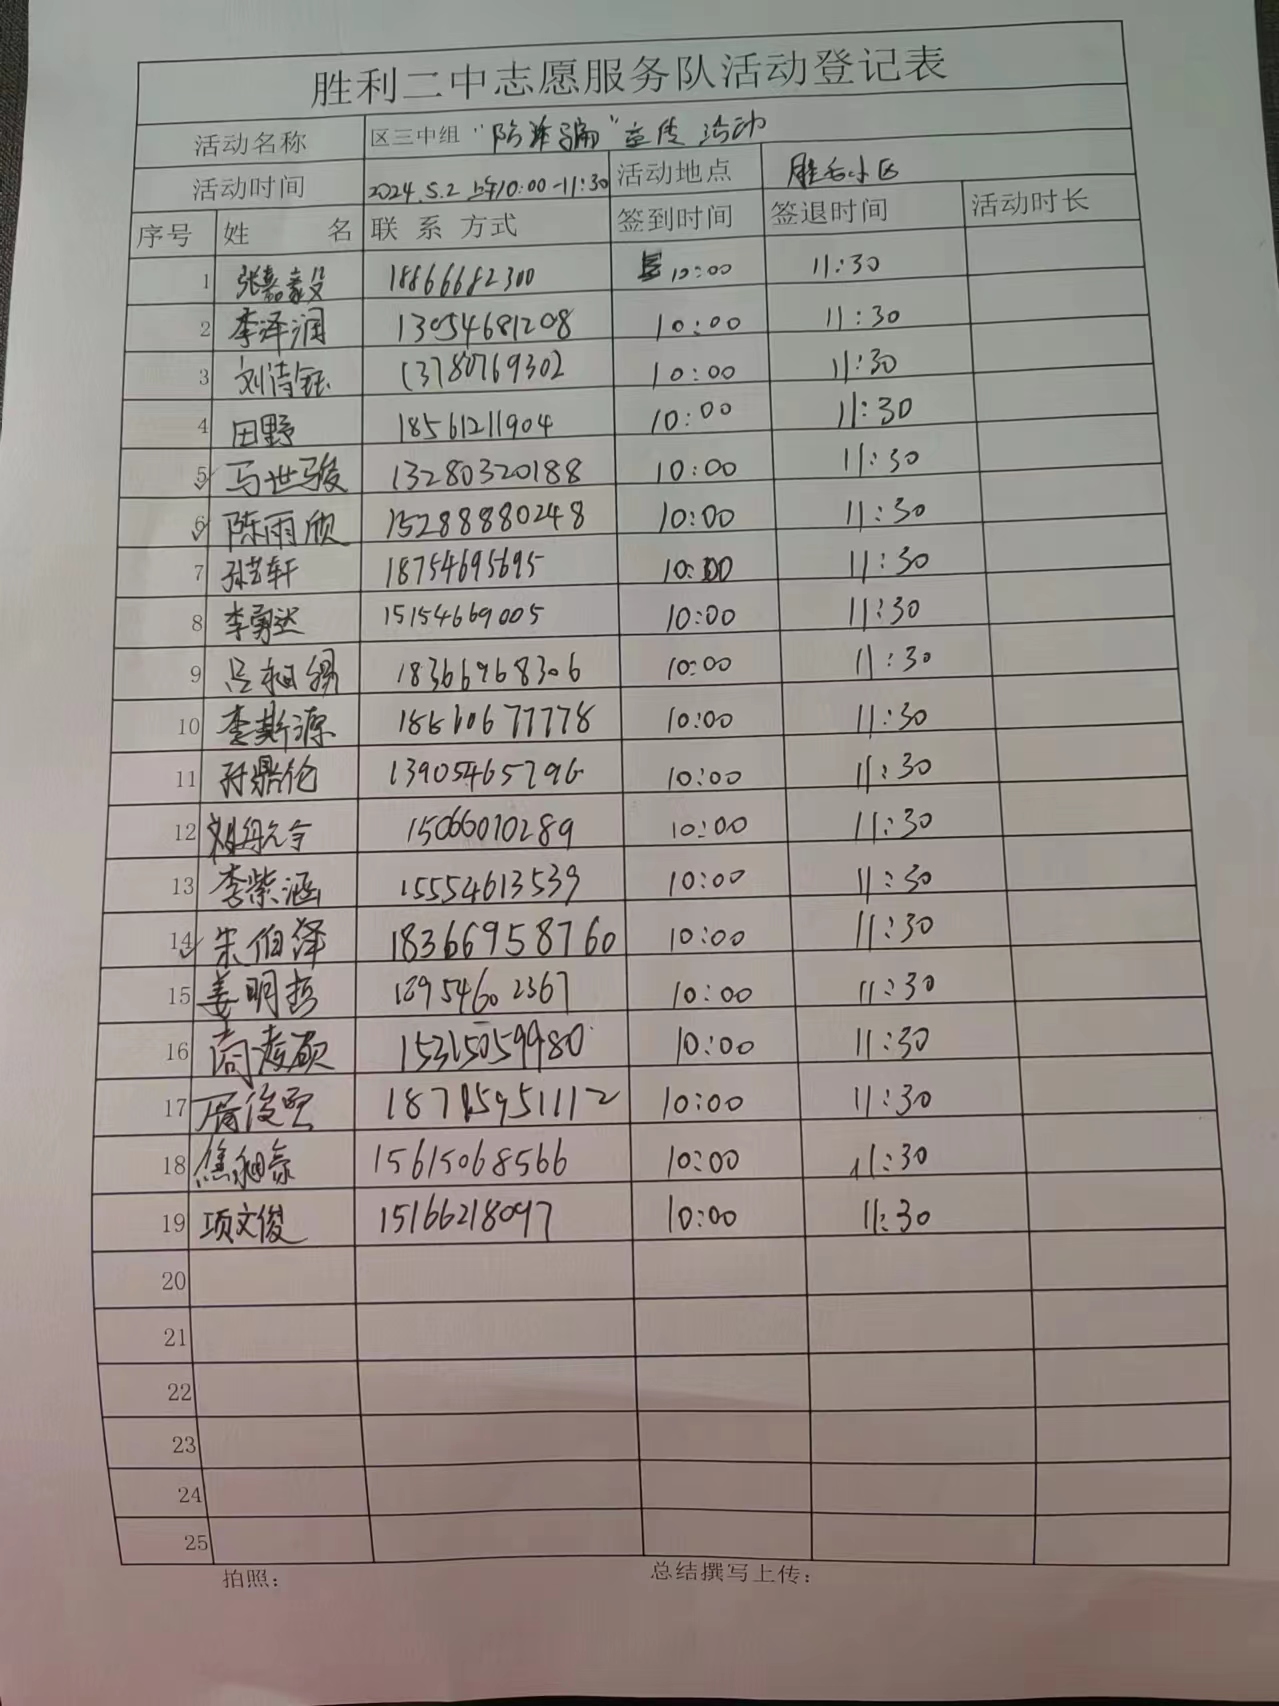 胜利二中志愿服务队活动登记表
活动名称 区三中组 "防诈骗"宣传活动
活动时间 2024.5.2 上午10:00-11:30 活动地点 胜大小区
序号 姓 名 联系方式 签到时间 签退时间 活动时长
1 张嘉毅 18866682300 10:00 11:30
2 李泽润 13054681208 10:00 11:30
3 刘诗钰 13780769302 10:00 11:30
4 田野 18561211904 10:00 11:30
5 马世骏 13280320188 10:00 11:30
6 陈雨欣 15288880248 10:00 11:30
7 孙艺轩 18754695695 10:00 11:30
8 李勇达 15154669005 10:00 11:30
9 18366968306 10:00 11:30
10 李斯源 10:00 11:30
11 孙鼎伦 13905465796 10:00 11:30
12 15066010289 10:00 11:30
13 李紫涵 15554613539 10:00 11:30
14 宋伯泽 18366958760 10:00 11:30
15 姜明哲 18954602367 10:00 11:30
16 15315059980 10:00 11:30
17 10:00 11:30
18 15615068566 10:00 11:30
19 项文俊 15166218097 10:00 11:30
20
21
22
23
24
25
拍照： 总结撰写上传：